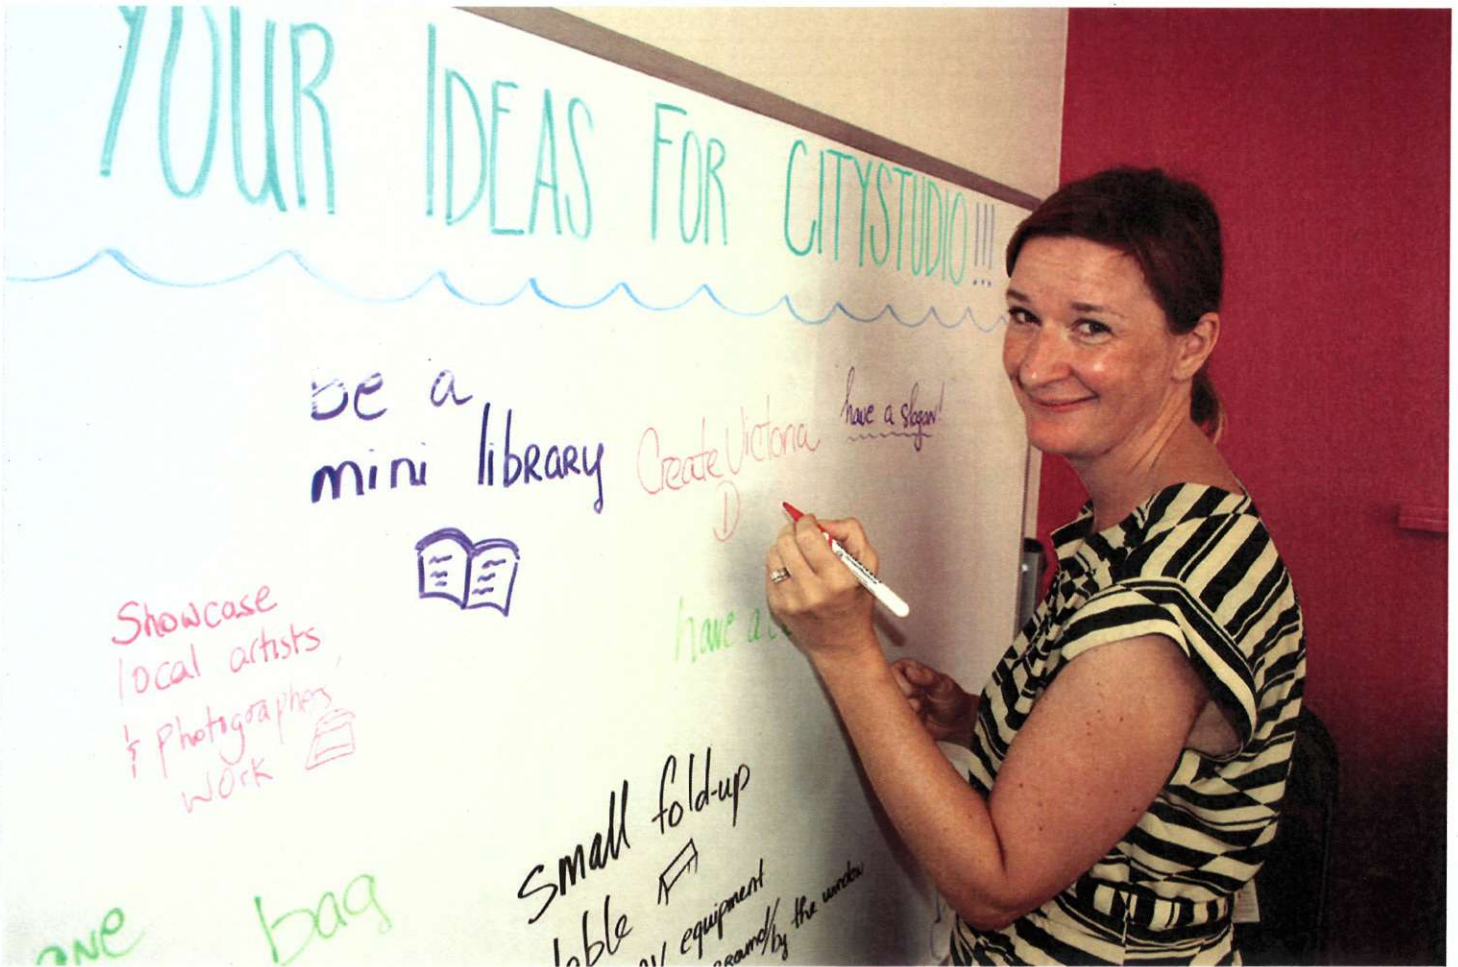 YOUR IDEAS FOR CITYSTUDIO!!!
be a
mini library
Create Victoria
D
have a slogan!
Showcase
local artists
& photographers
work
have a
small fold-up
equipment
by the window
bag